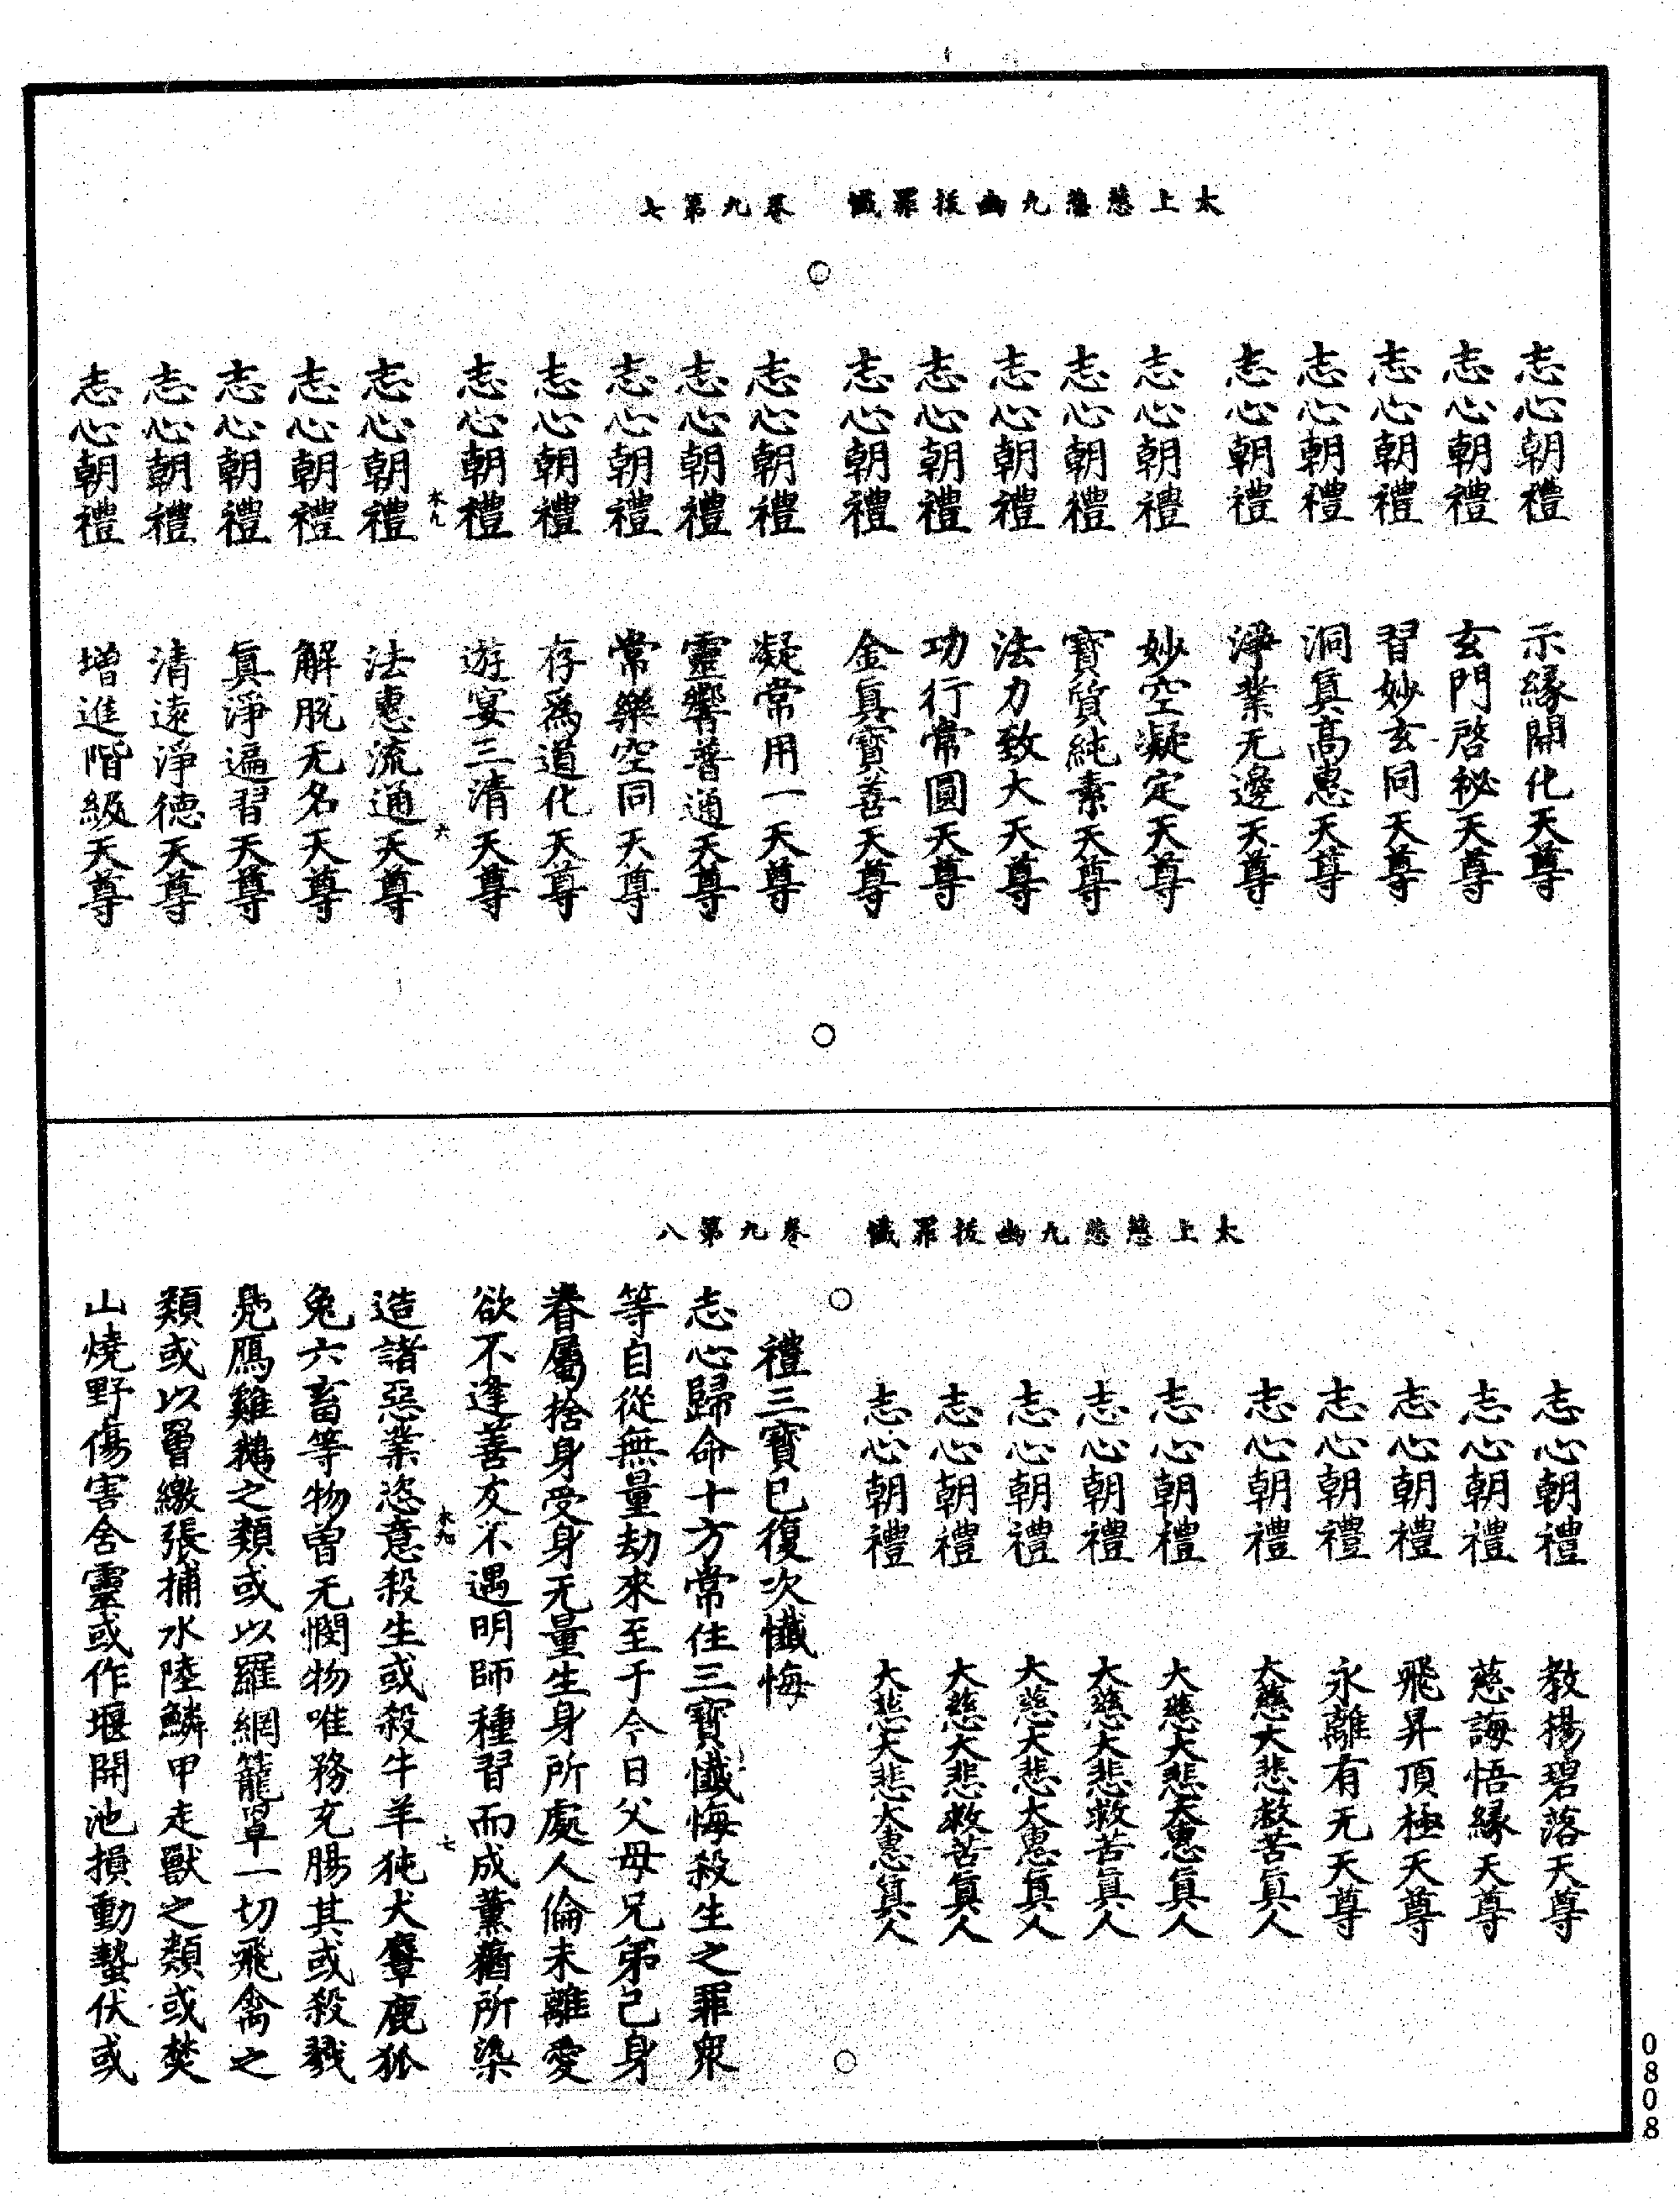 太上慈悲九幽拔罪懺　卷九第七
志心朝禮　示緣開化天尊
志心朝禮　玄門啓祕天尊
志心朝禮　習妙玄同天尊
志心朝禮　洞眞高惠天尊
志心朝禮　淨業无邊天尊
志心朝禮　妙空凝定天尊
志心朝禮　寶質純素天尊
志心朝禮　法力致大天尊
志心朝禮　功行常圓天尊
志心朝禮　金眞寶善天尊
志心朝禮　凝常用一天尊
志心朝禮　靈響普通天尊
志心朝禮　常樂空同天尊
志心朝禮　存爲道化天尊
志心朝禮　遊宴三清天尊
木九　六
志心朝禮　法惠流通天尊
志心朝禮　解脫无名天尊
志心朝禮　眞淨遍習天尊
志心朝禮　清遠淨德天尊
志心朝禮　增進階級天尊
太上慈悲九幽拔罪懺　卷九第八
志心朝禮　教揚碧落天尊
志心朝禮　慈誨悟緣天尊
志心朝禮　飛昇頂極天尊
志心朝禮　永離有无天尊
志心朝禮　大慈大悲救苦眞人
志心朝禮　大慈大悲大惠眞人
志心朝禮　大慈大悲救苦眞人
志心朝禮　大慈大悲大惠眞人
志心朝禮　大慈大悲救苦眞人
志心朝禮　大慈大悲大惠眞人
禮三寶已復次懺悔
志心歸命十方常住三寶懺悔殺生之罪衆
等自從無量劫來至于今日父母兄弟己身
眷屬捨身受身无量生身所處人倫未離愛
欲不逢善友不遇明師種習而成薰蕕所染
木九　七
造諸惡業恣意殺生或殺牛羊㹠犬麞鹿狐
兔六畜等物曾无憫物唯務充腸其或殺戮
鳬鴈雞鵝之類或以羅網籠罩一切飛禽之
類或以罾繳張捕水陸鱗甲走獸之類或焚
山燒野傷害含靈或作堰開池損動蟄伏或
0808